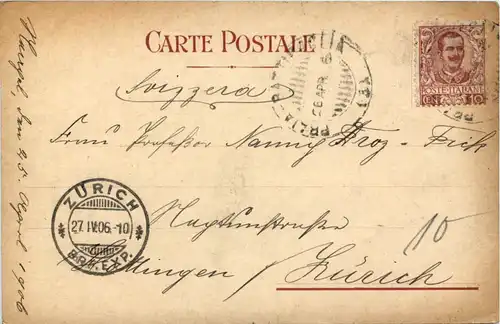 CARTE POSTALE
Svizzera
Frau Professor Nanny Droz-Fick
Neptunstrasse
Hottingen Zürich
10
den 25. April 1906
ZÜRICH
27.IV.06.-10
BRF. EXP.
26 APR 6
POSTE ITALIANE